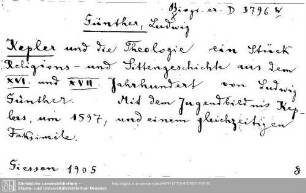 Biogr. er. D 3796 w
Günther, Ludwig
Kepler und die Theologie ein Stück
Religions- und Sittengeschichte aus dem
XVI. und XVII Jahrhundert von Ludwig
Günther. Mit dem Jugendbildnis Kep-
lers, um 1597, und einem gleichzeitigen
Faksimile.
Giessen 1905
8